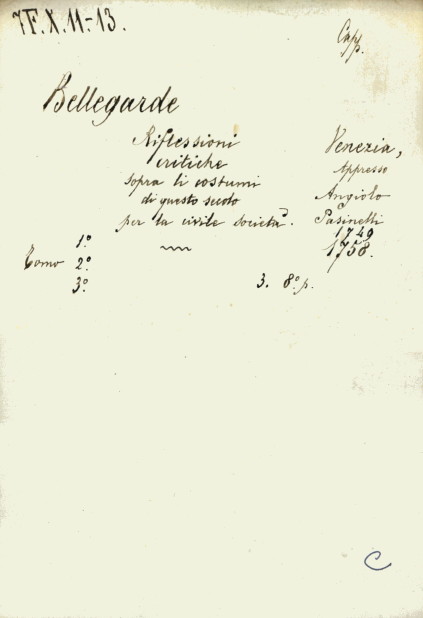 7F.X.11-13.
Capp.
Bellegarde
Riflessioni
critiche
sopra li costumi
di questo secolo
per la civile società.
Venezia,
Appresso
Angiolo
Pasinelli
1749
1758.
1º.
Tomo 2º.
3º.
3. 8º. p.
C